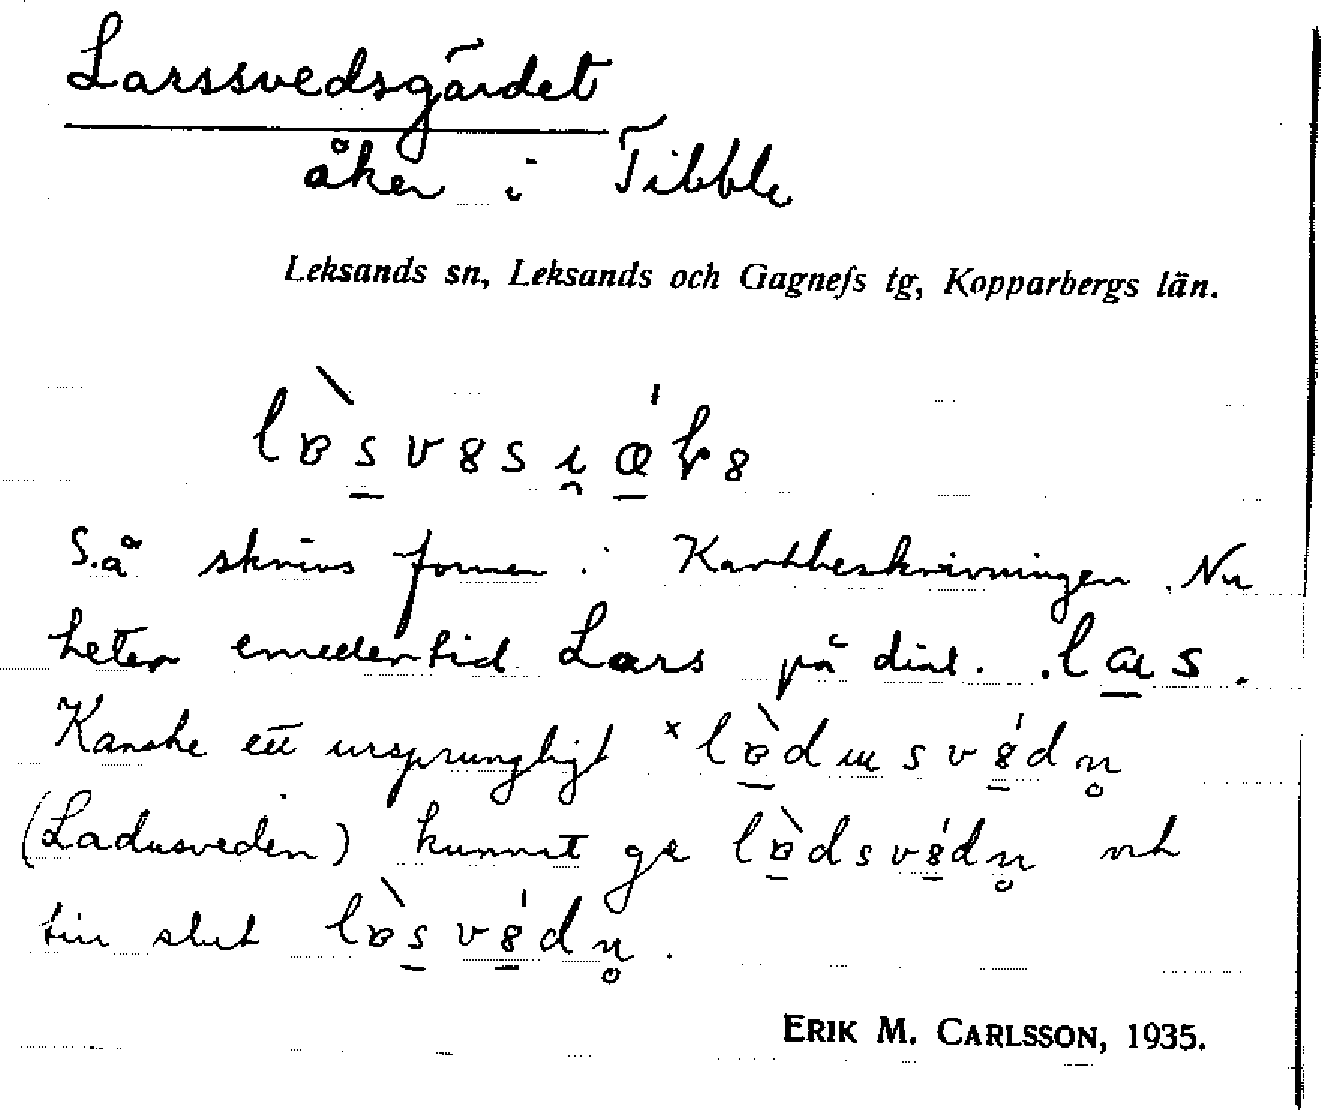 Larssvedsgärdet
åker i Tibble
Leksands sn, Leksands och Gagnefs tg, Kopparbergs län.
Så skrivs formen i Kartbeskrivningen. Nu
heter emellertid Lars på dial.
Kanske ett ursprungligt
(Ladusveden) kunnat ge och
till slut
ERIK M. CARLSSON, 1935.